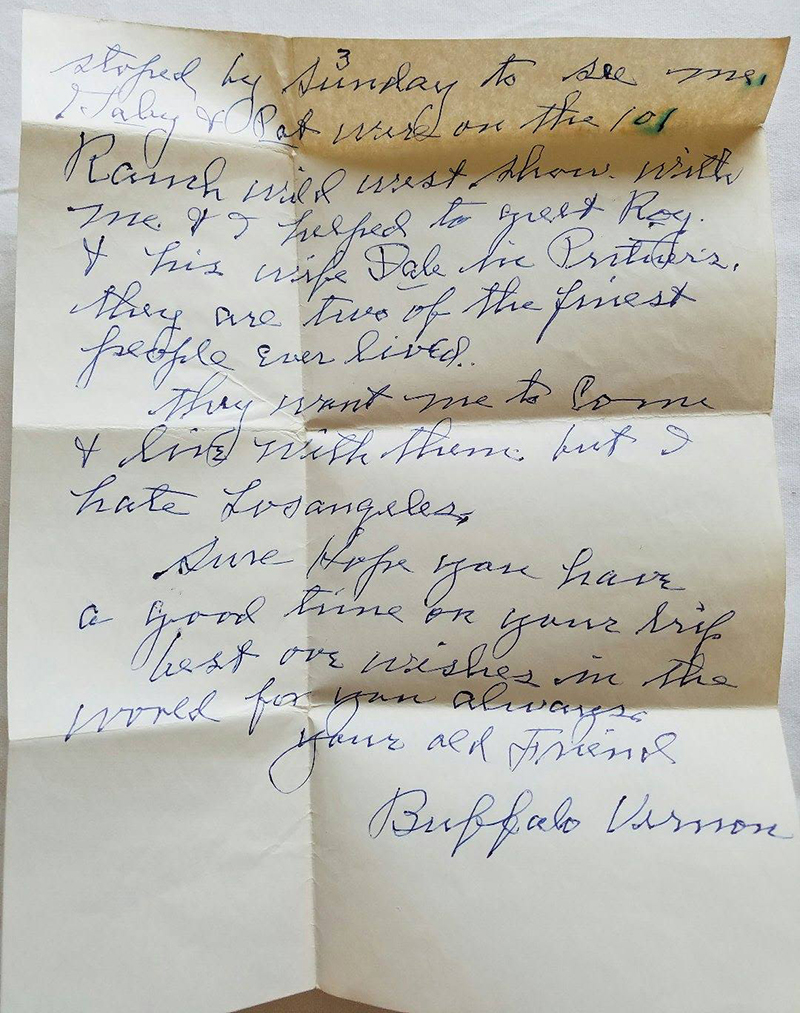 stoped by Sunday to see me.
3
Gaby & Pat were on the 101
Ranch wild west show. with
me. & I helped to greet Roy.
& his wife Dale in
they are two of the finest
people ever lived.
they want me to Come
& live with them. but I
hate Losangeles,
sure Hope you have
a good time on your trip
best ove wishes in the
world for you always.
your old Friend
Buffalo Vernon